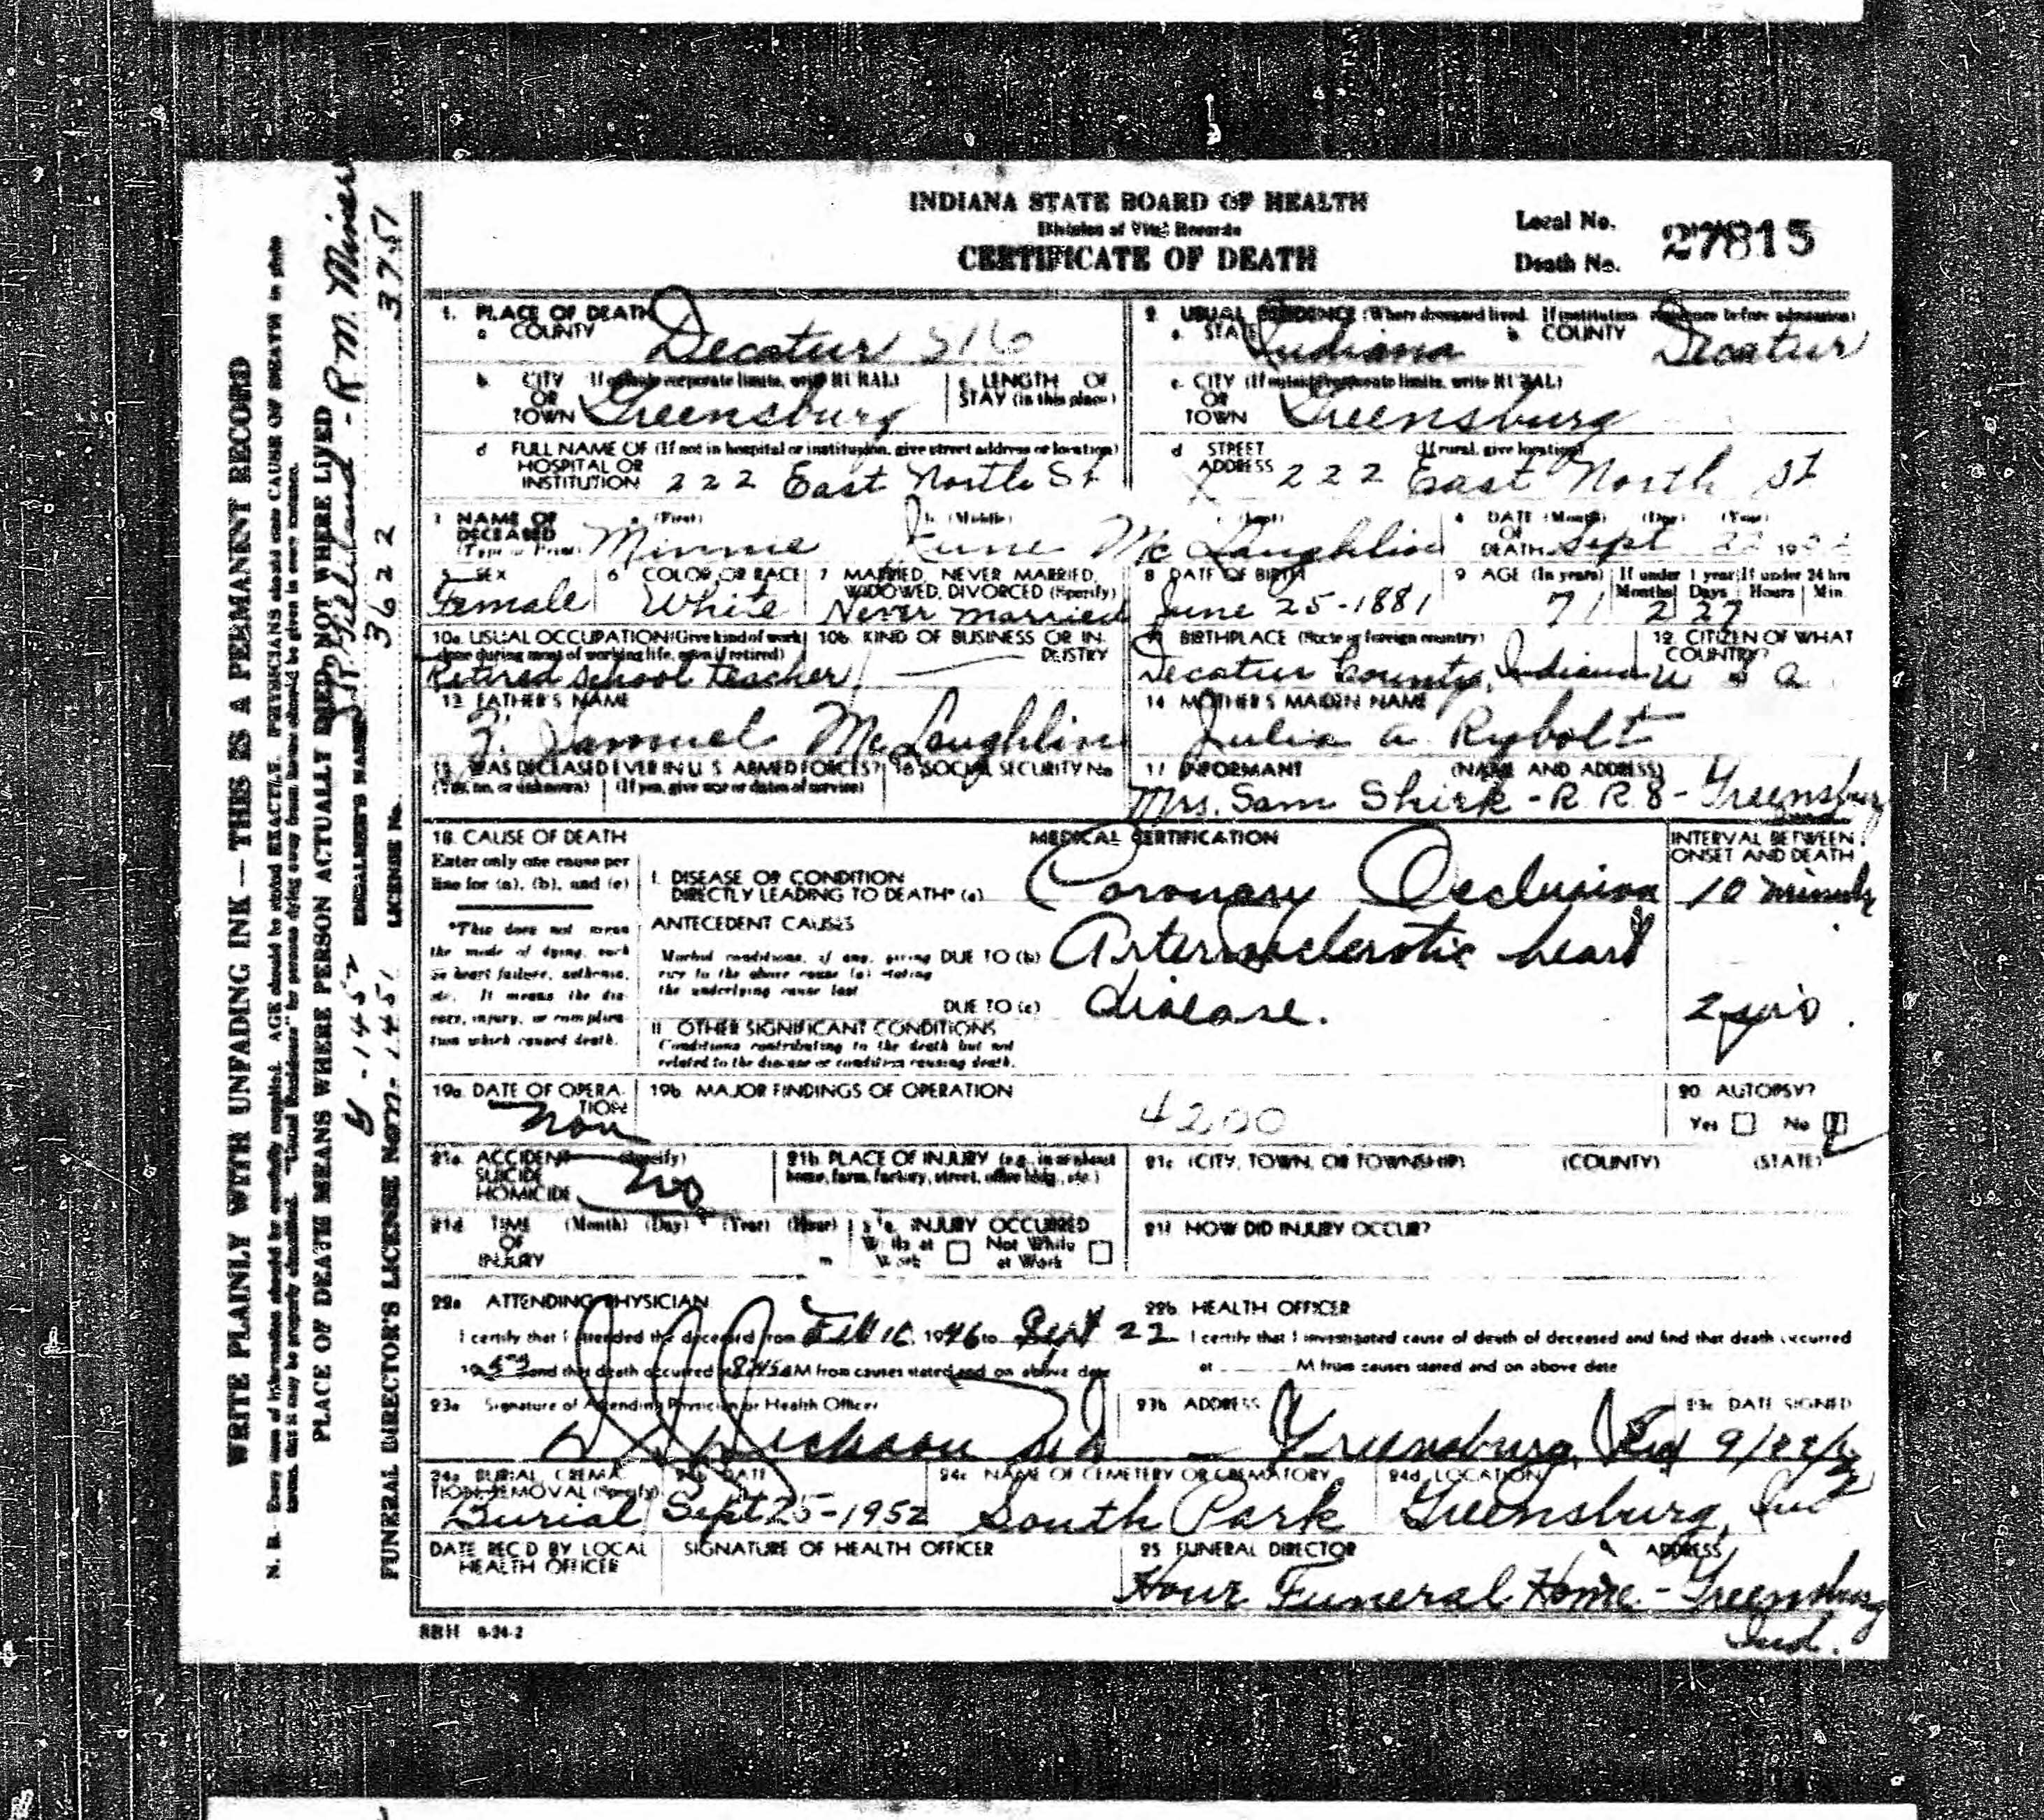 INDIANA STATE BOARD OF HEALTH
Division of Vital Records
CERTIFICATE OF DEATH
Local No.
Death No. 27815
1. PLACE OF DEATH
a COUNTY Decatur 516
b. CITY (If outside corporate limits, write RURAL)
OR
TOWN Greensburg
c. LENGTH OF
STAY (in this place)
d FULL NAME OF (If not in hospital or institution, give street address or location)
HOSPITAL OR
INSTITUTION 222 East North St
2. USUAL RESIDENCE (Where deceased lived. If institution residence before admission)
a. STATE Indiana b COUNTY Decatur
c. CITY (If outside corporate limits, write RURAL)
OR
TOWN Greensburg
d STREET (If rural, give location)
ADDRESS 222 East North St
3 NAME OF
DECEASED
(Type or Print)
a. (First) b. (Middle) c. (Last)
Minnie June McLaughlin
4 DATE (Month) (Day) (Year)
OF
DEATH Sept 22 1952
5 SEX
Female
6 COLOR OR RACE
White
7 MARRIED, NEVER MARRIED,
WIDOWED, DIVORCED (Specify)
Never married
8 DATE OF BIRTH
June 25-1881
9 AGE (In years) If under 1 year If under 24 hrs
Months Days Hours Min.
71 2 27
10a. USUAL OCCUPATION (Give kind of work
done during most of working life, even if retired)
Retired School Teacher
10b. KIND OF BUSINESS OR IN-
DUSTRY
11 BIRTHPLACE (State or foreign country)
Decatur County, Indiana
12. CITIZEN OF WHAT
COUNTRY?
U S A
13 FATHER'S NAME
Samuel McLaughlin
14 MOTHER'S MAIDEN NAME
Julia A Rybolt
15. WAS DECEASED EVER IN U. S. ARMED FORCES?
(Yes, no, or unknown) (If yes, give war or dates of service)
16 SOCIAL SECURITY No
17 INFORMANT (NAME AND ADDRESS)
Mrs. Sam Shirk - R R 8 - Greensburg
18. CAUSE OF DEATH
Enter only one cause per
line for (a), (b), and (c)
*This does not mean
the mode of dying, such
as heart failure, asthenia,
etc. It means the dis-
ease, injury, or complica-
tion which caused death.
MEDICAL CERTIFICATION
I. DISEASE OR CONDITION
DIRECTLY LEADING TO DEATH* (a) Coronary Occlusion
ANTECEDENT CAUSES
Morbid conditions, if any, giving
rise to the above cause (a) stating
the underlying cause last
DUE TO (b) Arteriosclerotic heart
DUE TO (c) disease.
II OTHER SIGNIFICANT CONDITIONS
Conditions contributing to the death but not
related to the disease or condition causing death.
INTERVAL BETWEEN
ONSET AND DEATH
10 minutes
2 yrs.
19a. DATE OF OPERA-
TION
19b. MAJOR FINDINGS OF OPERATION
4200
20. AUTOPSY?
Yes No
21a. ACCIDENT (Specify)
SUICIDE
HOMICIDE No
21b. PLACE OF INJURY (e.g., in or about
home, farm, factory, street, office bldg., etc.)
21c (CITY, TOWN, OR TOWNSHIP) (COUNTY) (STATE)
21d TIME (Month) (Day) (Year) (Hour)
OF
INJURY m
21e. INJURY OCCURRED
While at Not While
Work at Work
21f HOW DID INJURY OCCUR?
22a ATTENDING PHYSICIAN
I certify that I attended the deceased from 1946 to Sept 22
1952 and that death occurred at 8:45 a M from causes stated and on above date
22b. HEALTH OFFICER
I certify that I investigated cause of death of deceased and find that death occurred
at M from causes stated and on above date
23a Signature of Attending Physician or Health Officer
Dickson MD
23b ADDRESS
Greensburg, Ind
23c DATE SIGNED
9/22/52
24a BURIAL, CREMA-
TION, REMOVAL (Specify)
Burial
24b. DATE
Sept 25-1952
24c NAME OF CEMETERY OR CREMATORY
South Park
24d. LOCATION
Greensburg, Ind
DATE REC'D BY LOCAL
HEALTH OFFICER
SIGNATURE OF HEALTH OFFICER
25 FUNERAL DIRECTOR ADDRESS
Funeral Home - Greensburg
Ind.
SBH 6-24-2
WRITE PLAINLY WITH UNFADING INK — THIS IS A PERMANENT RECORD
N. B.- Every item of information should be carefully supplied. AGE should be stated EXACTLY. PHYSICIANS should state CAUSE OF DEATH in plain
terms, that it may be properly classified. "Usual Residence" for persons dying away from home should be given in every instance.
PLACE OF DEATH MEANS WHERE PERSON ACTUALLY DIED, NOT WHERE LIVED
EMBALMER'S NAME - R M Miner
LICENSE No. 3622 3751
FUNERAL DIRECTOR'S LICENSE No. 1451